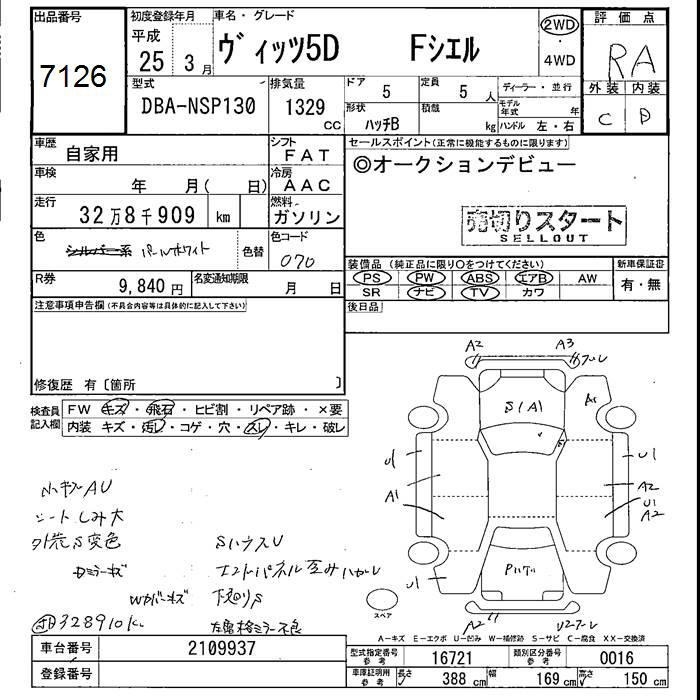 出品番号
7126
初度登録年月
平成
25 3月
車名・グレード
ヴィッツ5D Fシエル
2WD
・
4WD
評価点
RA
外装 内装
C D
型式
DBA-NSP130
排気量
1329
cc
ドア 5
定員 5 人
形状
ハッチB
積載
kg
ディーラー・並行
モデル年式 年
ハンドル 左・右
車歴
自家用
シフト
FAT
車検
年 月( 日)
冷房
AAC
走行
32万8千909 km
燃料
ガソリン
色
シルバー系 パールホワイト
色替
色コード
070
R券
9,840円
名変通知期限
月 日
セールスポイント(正常に機能するものに限ります)
◎オークションデビュー
売切りスタート
SELLOUT
装備品(純正品に限り○をつけてください)
PS PW ABS エアB AW
SR ナビ TV カワ
新車保証書
有・無
後日品
注意事項申告欄(不具合内容等は具体的に記入して下さい)
修復歴 有〔箇所 〕
検査員
記入欄
FW キズ・飛石・ヒビ割・リペア跡・×要
内装 キズ・汚レ・コゲ・穴・スレ・キレ・破レ
A2 A3
S(A)
U1 U1
A1 A2
U1
A2
U1
シートしみ大
外荒S変色
SハウスU
Dミラーキズ
エンドパネル歪みハガレ
Wカバーキズ
下廻りS
328910K
左電格ミラー不良
スペア
A2
A-キズ E-エクボ U-凹み W-補修跡 S-サビ C-腐食 XX-交換済
車台番号
2109937
登録番号
型式指定番号
参考
16721
類別区分番号
参考
0016
車庫証明用
参考
長さ 388cm
幅 169cm
高さ 150cm